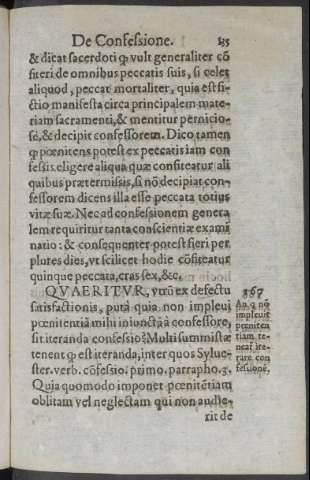 De Confessione. 185
& dicat sacerdoti ꝙ vult generaliter cõ
fiteri de omnibus peccatis suis, si celet
aliquod, peccat mortaliter, quia est fi-
ctio manifesta circa principalem mate-
riam sacramenti, & mentitur pernicio-
sè, & decipit confessorem. Dico tamen
ꝙ pœnitens potest ex peccatis iam con
fessis eligere aliqua quæ confiteatur ali
quibus prætermissis, si nõ decipiat con-
fessorem dicens illa esse peccata totius
vitæ suæ. Nec ad confessionem genera
lem requiritur tanta conscientiæ exami
natio: & consequenter potest fieri per
plures dies, vt scilicet hodie cõfiteatur
quinque peccata, cras sex, &c.
QVAERITVR, vtrũ ex defectu
satisfactionis, puta quia non impleui
pœnitentiã mihi iniunctã à confessore,
sit iteranda confessio? Multi summistæ
tenent ꝙ est iteranda, inter quos Sylue-
ster. verb. cõfessio. primo. parrapho. 3.
Quia quomodo imponet pœnitẽtiam
oblitam vel neglectam qui non audie-
rit de
367
An q̃ nõ
impleuit
pœniten
tiam te-
neat̃ ite-
rare con
fessionẽ.